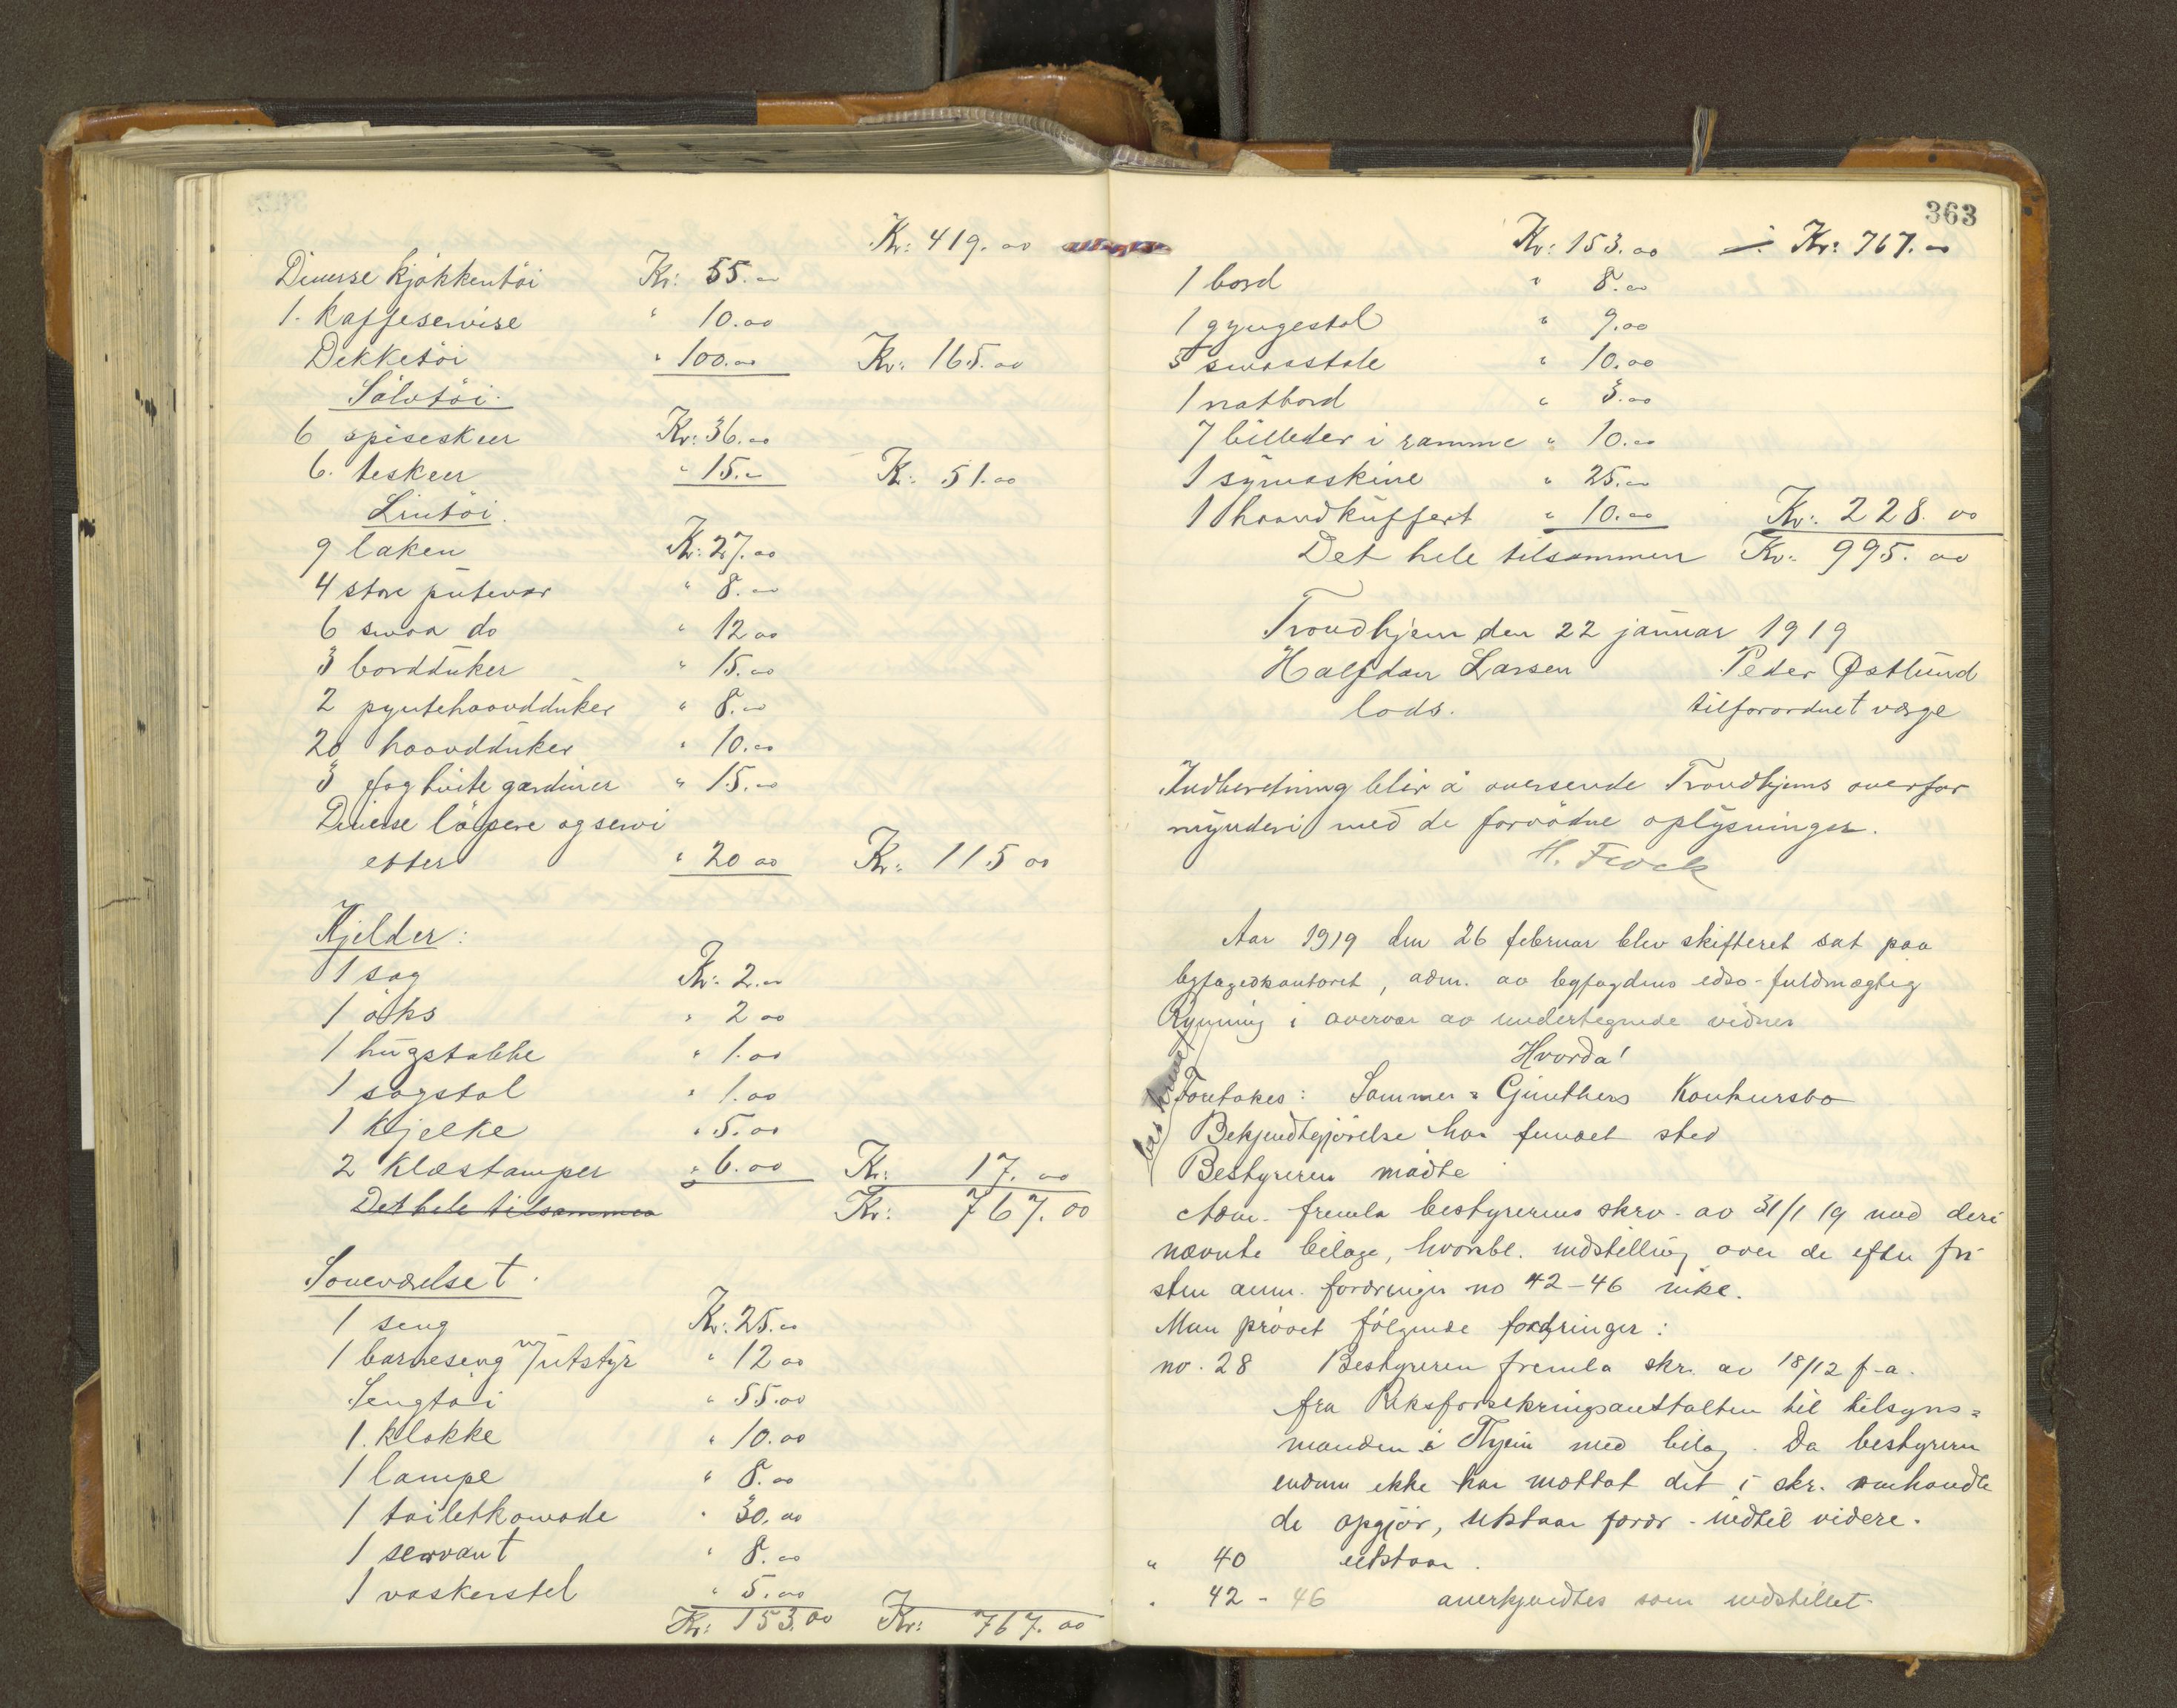 Kr: 419.00
Diverse kjökkentöi Kr: 55.00
1. kaffeservise " 10.00
Dekketöi " 100.00 Kr: 165.00
Sölvtöi.
6 spiseskeer Kr: 36.00
6. teskeer " 15.00 Kr: 51.00
Lintöi.
9 laken Kr: 27.00
4 store putevar " 8.00
6 smaa do " 12 00
3 bordduker " 15.00
2 pyntehaandduker " 8.00
20 haandduker " 10.00
3 fag hvite gardiner " 15.00
Diverse löpere og servi
etter " 20 00 Kr: 115 00
Kjelder:
1 sag Kr: 2.00
1 öks " 2 00
1 hugstabbe " 1.00
1 sagstol " 1.00
1 kjelke " 5.00
2 klæstamper " 6.00 Kr: 17.00
Det hele tilsammen Kr: 767.00
Soveværelset.
1 seng Kr: 25.00
1 barneseng m/utstyr " 12 00
Sengtöi " 55.00
1. klokke " 10.00
1 lampe " 8.00
1 toiletkomode " 30.00
1 servant " 8.00
1 vaskerstel " 5.00
Kr: 153.00 Kr: 767.00
363
Kr: 153.00 Kr: 767.00
1 bord " 8.00
1 gyngestol " 9.00
5 smaastole " 10.00
1 natbord " 3.00
7 billeder i ramme " 10.00
1 symaskine " 25.00
1 haandkuffert " 10.00 Kr: 228.00
Det hele tilsammen Kr: 995.00
Trondhjem den 22 januar 1919
Halfdan Larsen Peder Østlund
lods. tilforordnet værge
Indberetning blir å oversende Trondhjems overfor
mynderi med de fornödne oplysninger.
H. Frock
Aar 1919 den 26 februar blev skifteret sat paa
byfogedkontoret, adm. av byfogdens edsv-fuldmægtig
Rynning i overvær av undertegnede vidner
Hvorda!
Foretokes: Sommer = Günthers Konkursbo
Bekjendtgjörelse har fundet sted
Bestyreren mödte
Adm. fremla bestyrerens skrv. av 31/1 19 med deri
nævnte bilage, hvoribl. indstilling over de efter fri-
sten anm. fordringer no 42-46 inkl.
Man prövet fölgende fordringer:
no. 28 Bestyreren fremla skr. av 18/12 f-a.
fra Riksforsikringsanstalten til tilsyns=
manden i Thjem med bilag. Da bestyreren
endnu ikke har mottat det i skr. omhandle
de opgjör, utstaar fordr. indtil videre.
" 40 utstaar.
" 42-46 anerkjendtes som indstillet.